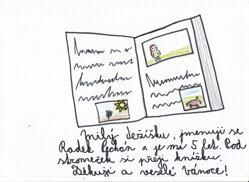 Milý Ježíšku, jmenuji se
Radek Čechan a je mi 5 let. Pod
stromeček si přeji knížku.
Děkuji a veselé Vánoce!